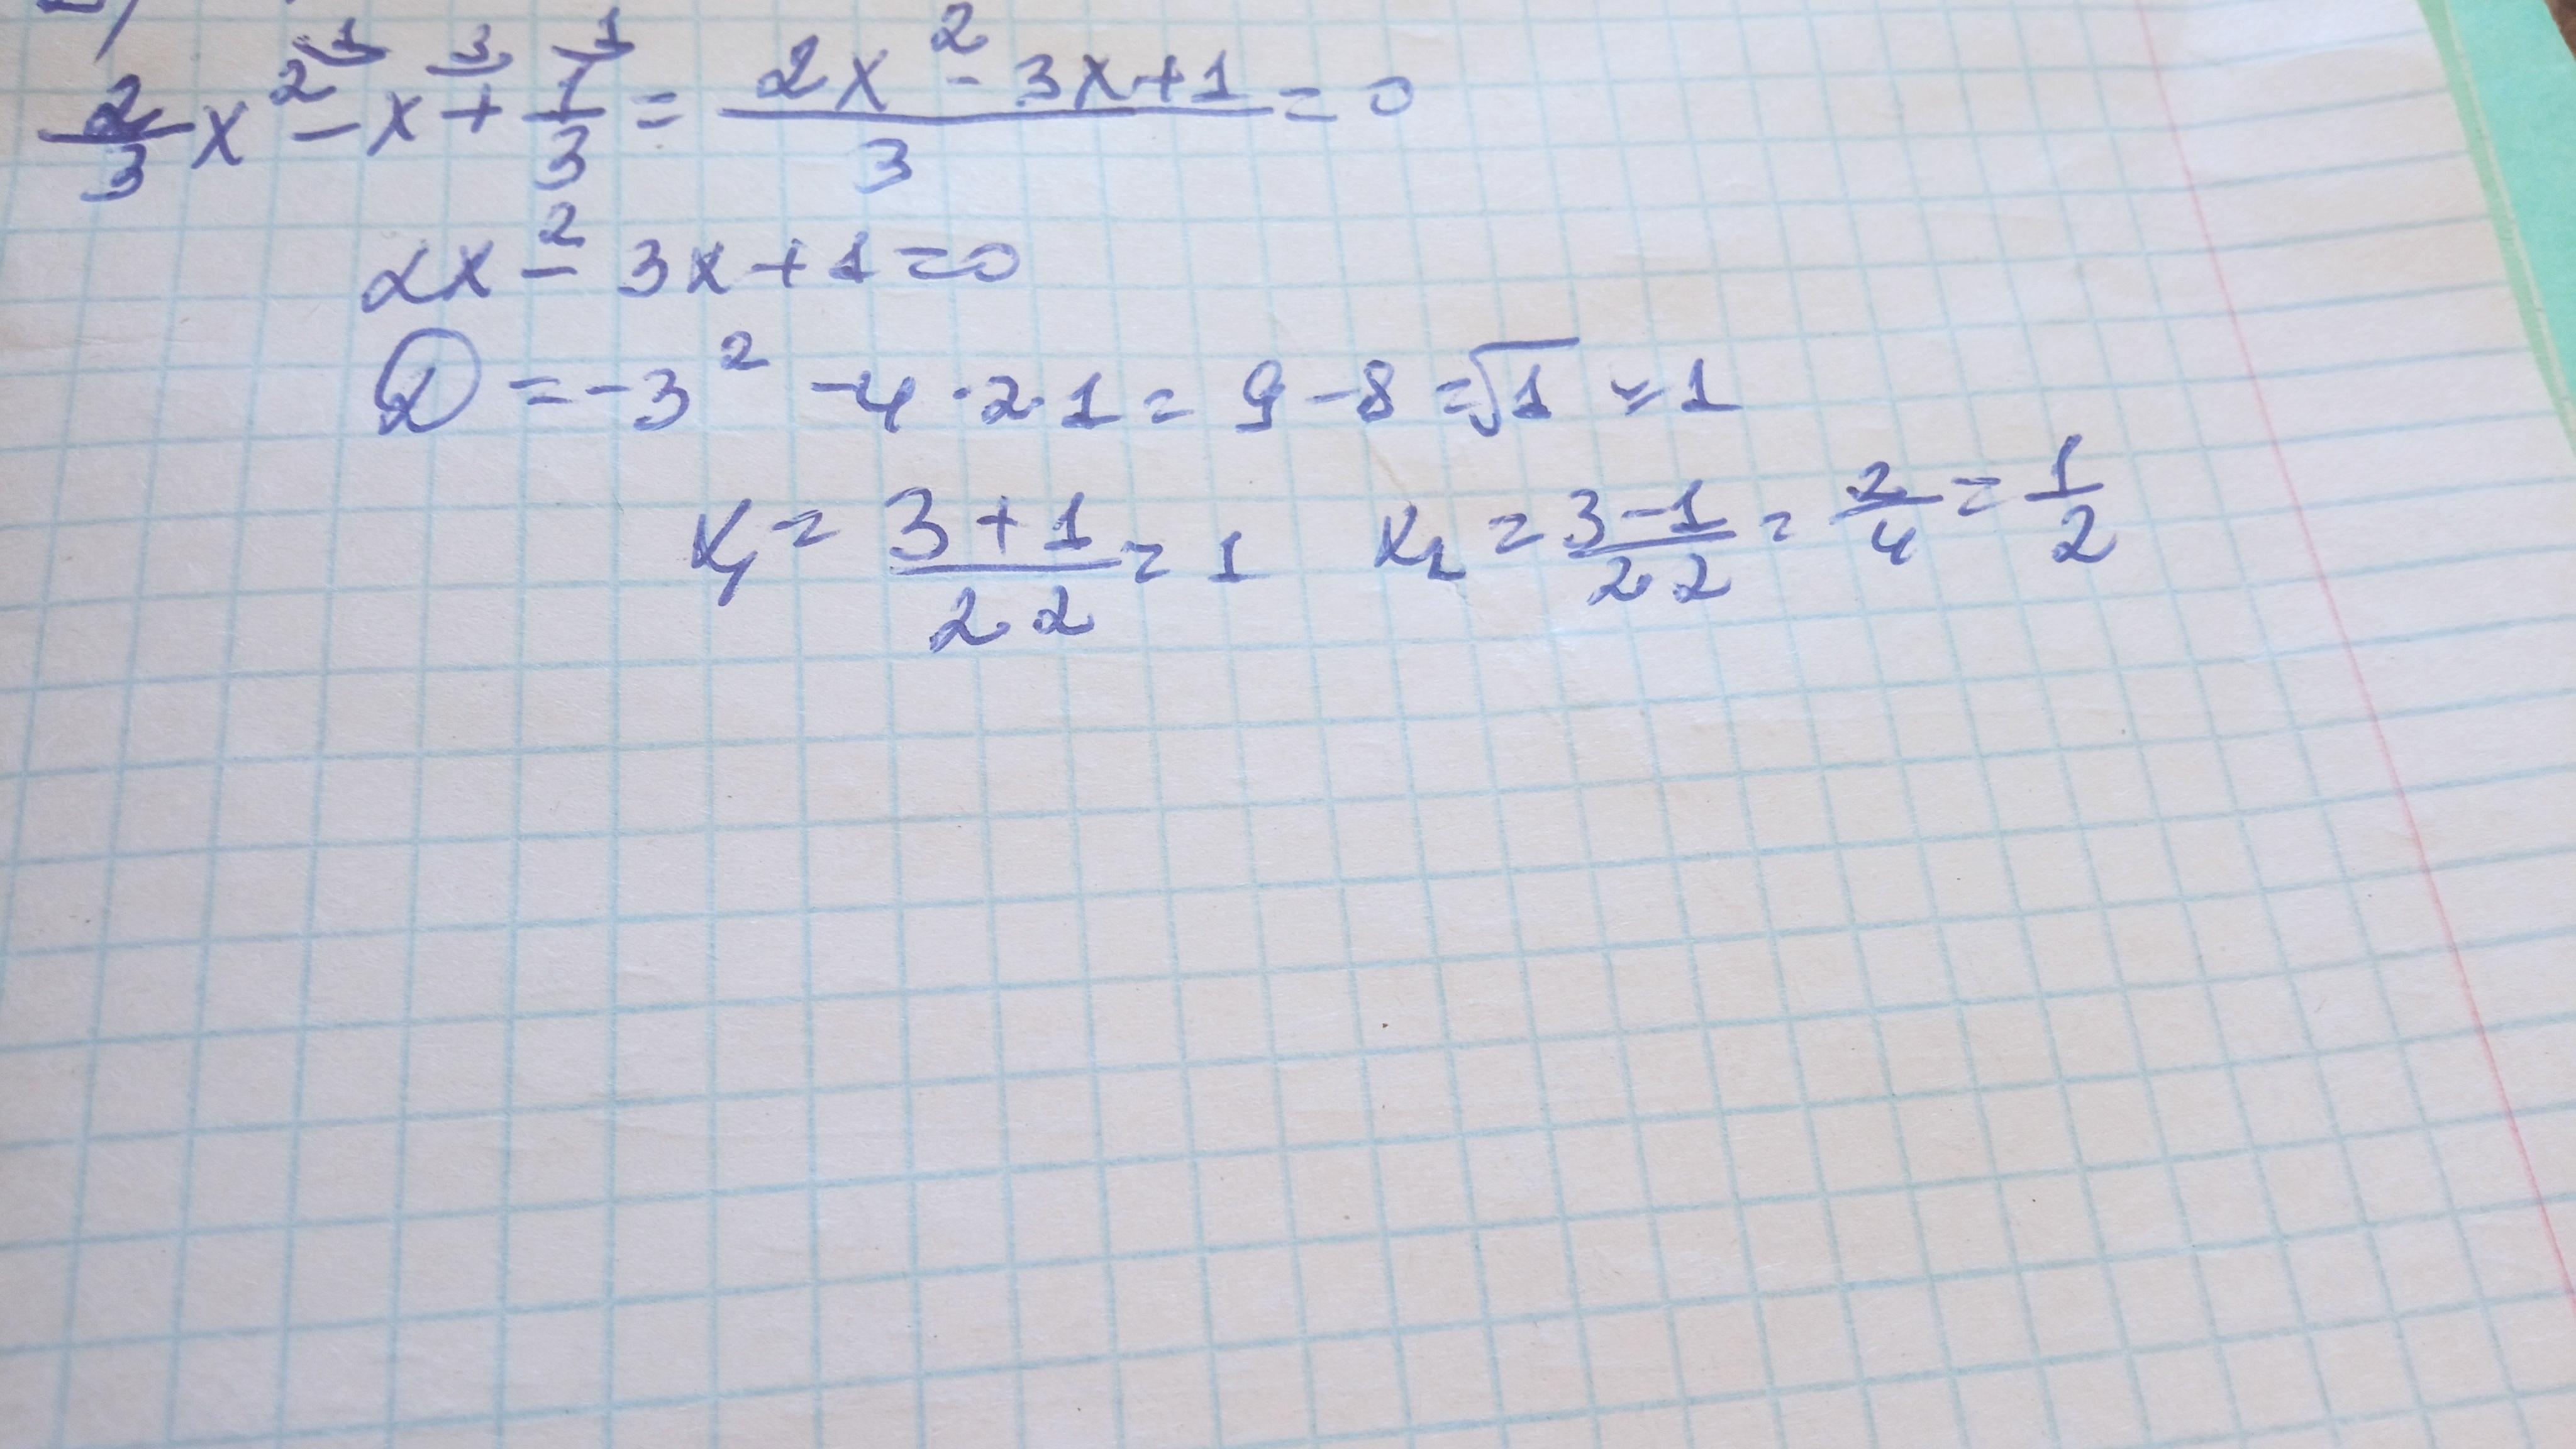 2/3 x² ¹⁾ - x ³⁾ + 1/3 ¹⁾ = (2x² - 3x + 1)/3 = 0
2x² - 3x + 1 = 0
D = -3² - 4 · 2 · 1 = 9 - 8 = √1 = 1
x₁ = (3 + 1)/(2 2) = 1 x₂ = (3 - 1)/(2 2) = 2/4 = 1/2